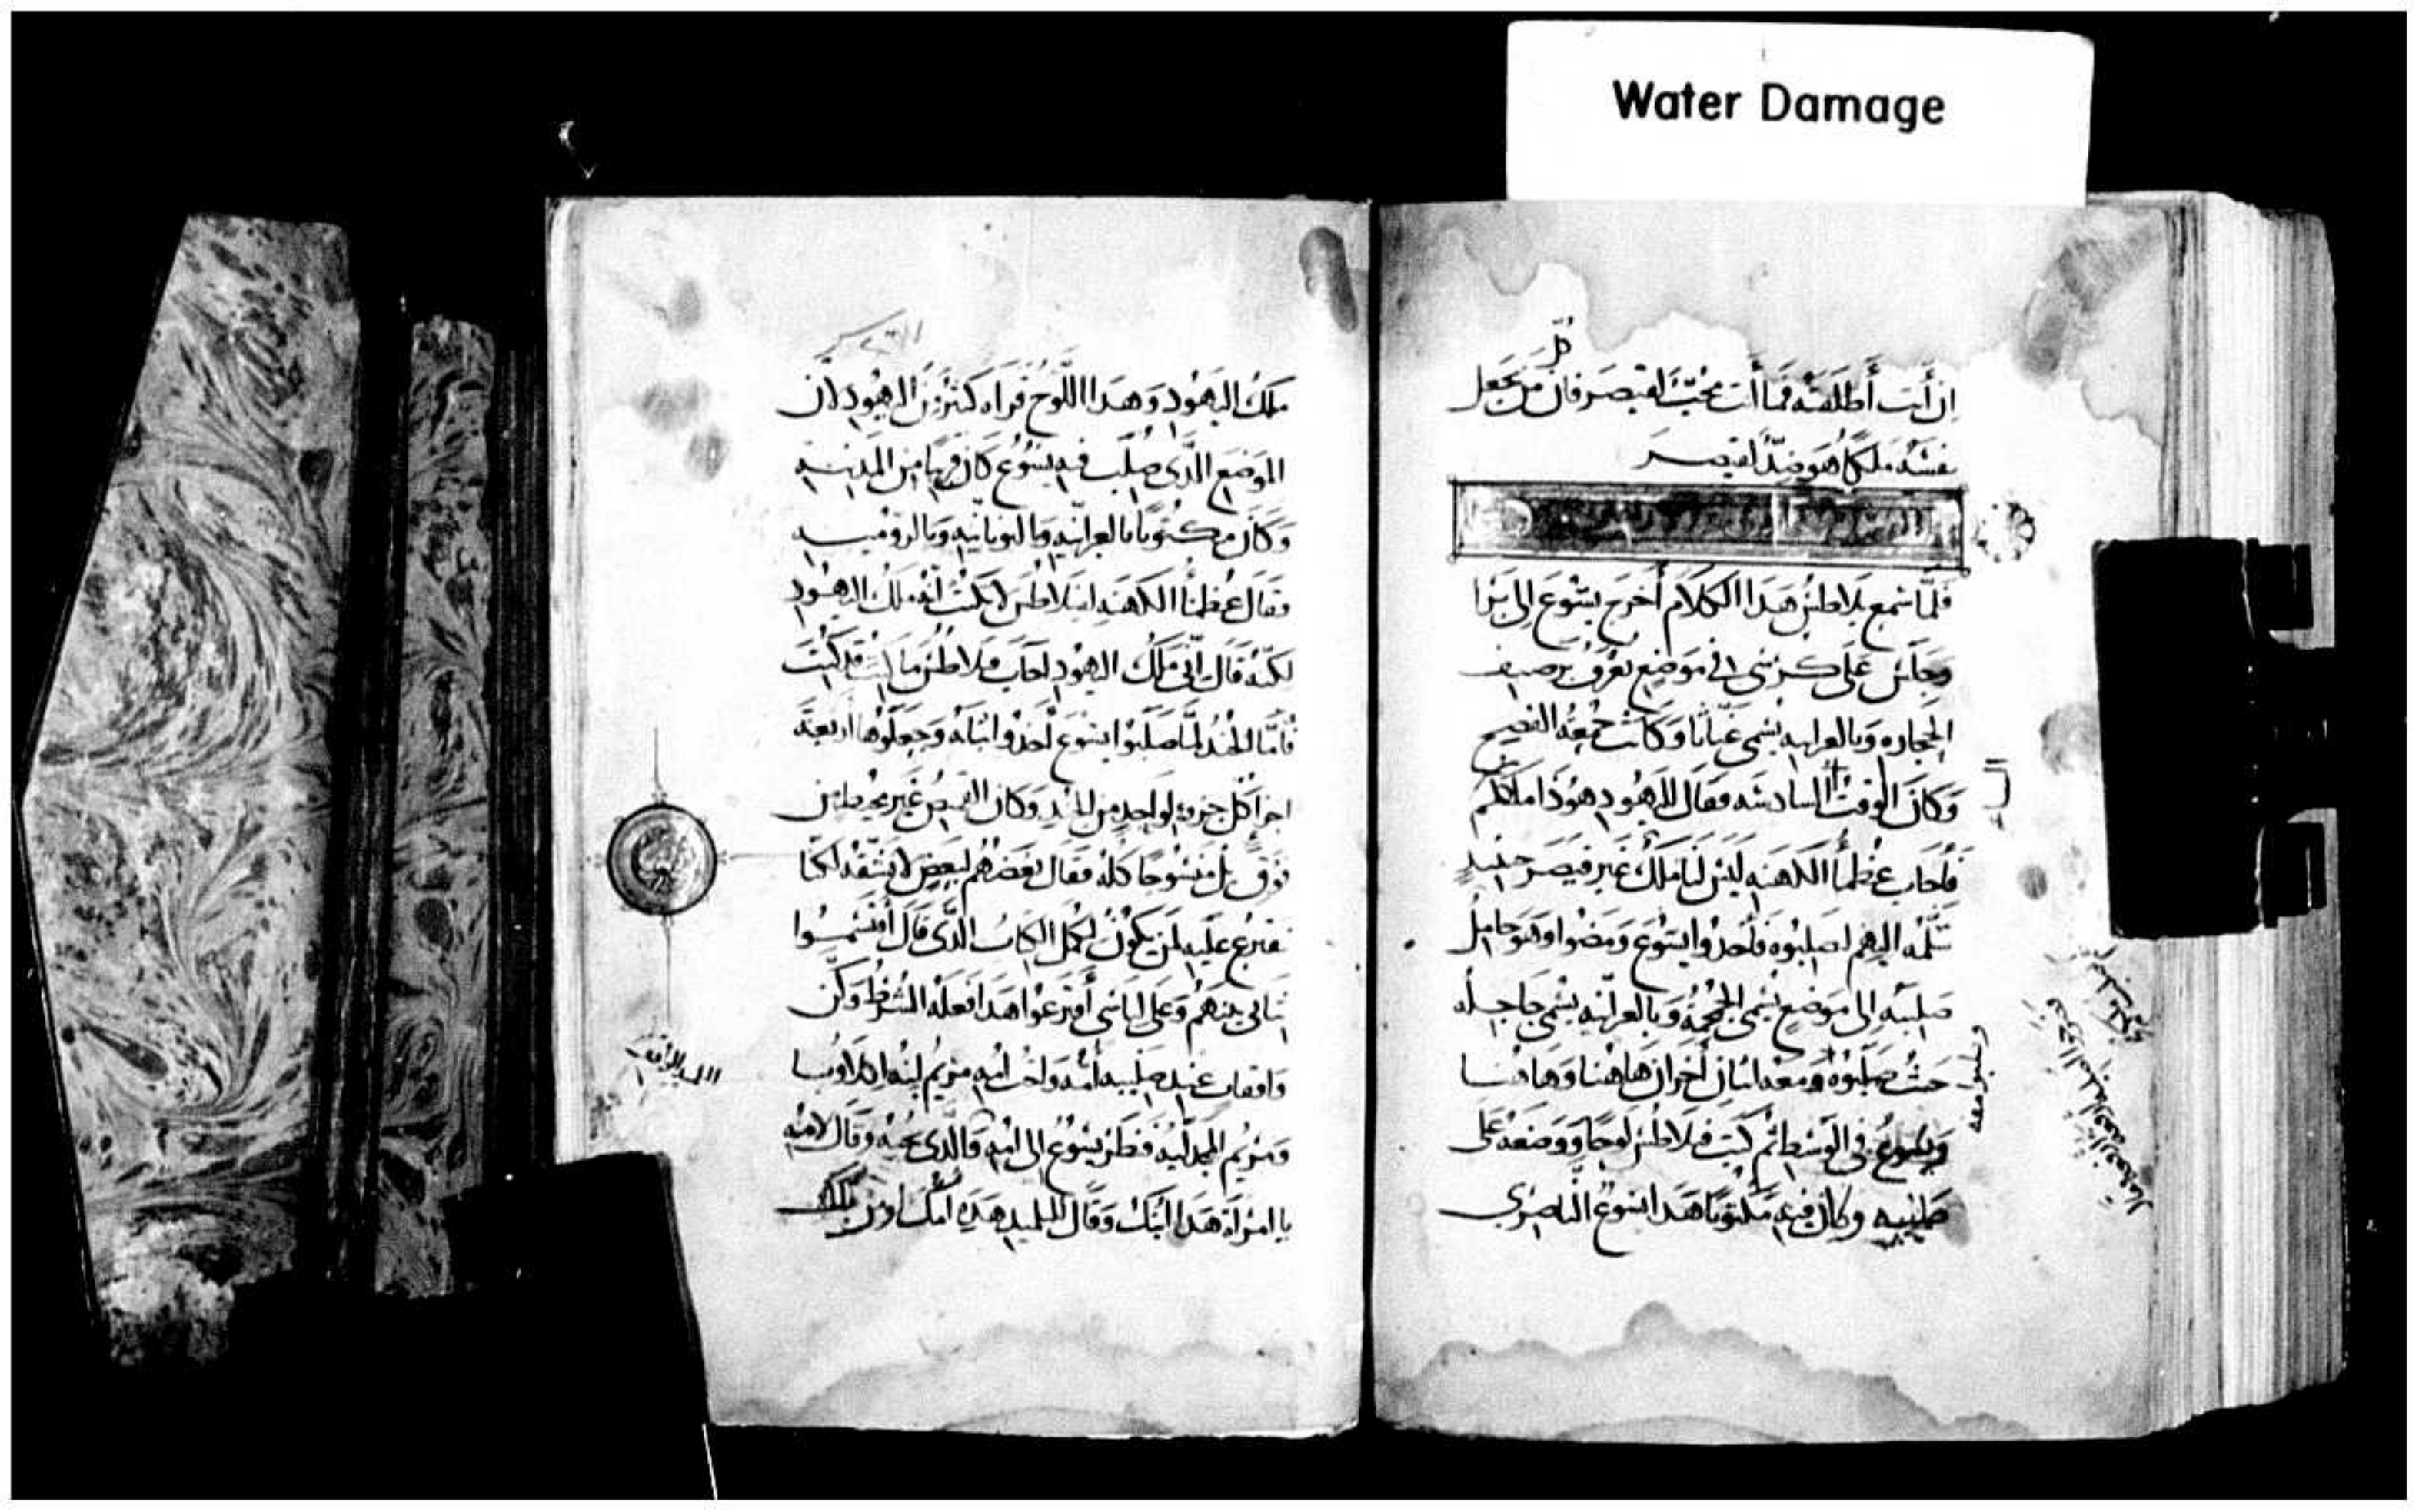 Water Damage
كل
ان أنت أطلقته فما أنت محب لقيصر فان من يجعل
نفسه ملكا هو ضدا لقيصر
فلما سمع بلاطس هدا الكلام أخرج يسوع الى برا
وجلس على كرسي في موضع يعرف برصيف
الحجاره وبالعرانيه يسمى غباثا وكانت جمعه الفصح
وكان الوقت الساد سه فقال لليهود هودا ملككم
فأجاب عظما الكهنه ليس لنا ملك غير قيصر حينيد
سلمه اليهم ليصلبوه فأخدوا يسوع ومضوا وهو حامل
صليبه الى موضع يسمى الجمجمة وبالعرانيه يسمى جاجله
حيث صلبوه ومعه اثنان أخران هاهنا وهاهنا
ويسوع في الوسط ثم كتب فيلاطس لوحا ووضعه على
صليبه وكان فيه مكتوبا هدا يسوع الناصري
ملك اليهود وهدا اللوح قراه كثير من اليهود لان
الموضع الدى صلب فيه يسوع كان قريبا من المدينه
وكان مكتوبا بالعرانيه وباليونانيه وبالروميه
فقال عظما الكهنه لبيلاطس لا تكتب أنه ملك اليهود
لكنه قال اني ملك اليهود اجاب فيلاطس ما كتبت قد كتبت
فأما الجند لما صلبوا يسوع أخدوا ثيابه وجعلوها أربعة
اجزا كل جزو لواحد من الجند وكان القميص غير مخيط من
فوق بل منسوجا كله فقال بعضهم لبعض لا نشقه لكنا
نقترع عليه لمن يكون ليكمل الكتاب الدى قال أقتسموا
ثيابي بينهم وعلى لباسي أقترعوا هدا فعله الشرط وكن
واقفات عند صليبه أمه واخت امه مريم ابنه اكلاوبا
ومريم المجدليه فنظر يسوع الى امه والدى يحبه وقال لامه
يا امراة هدا ابنك وقال للتلميد هده امك ومن تلك